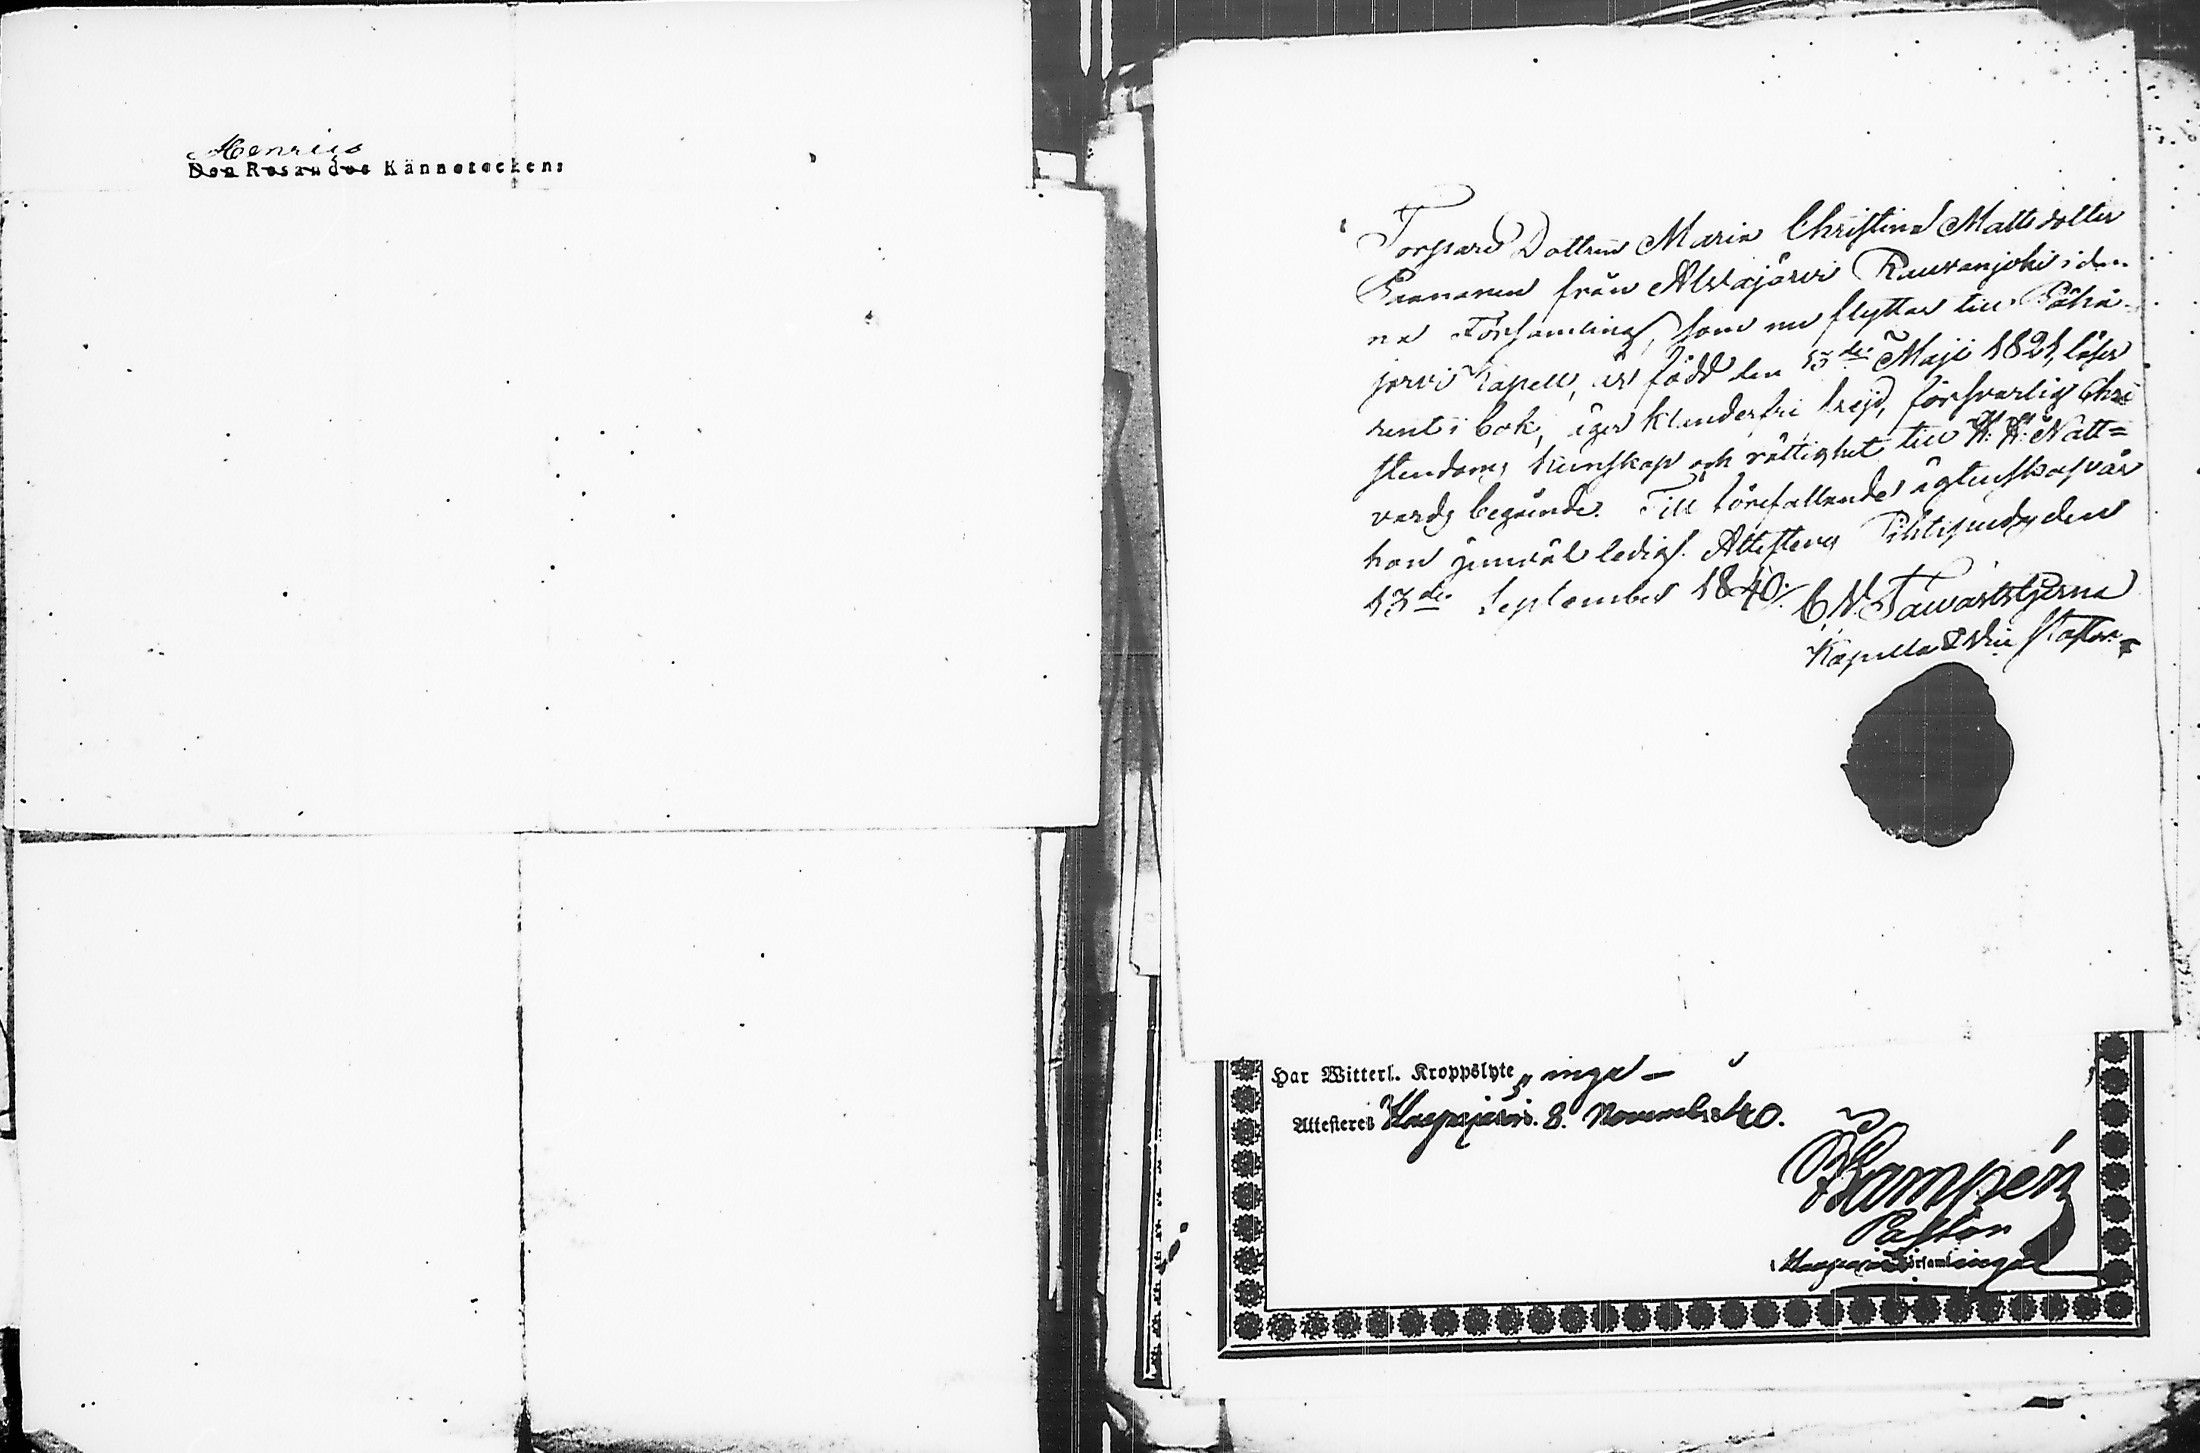 Henriks
Den Resandes Känneteckens
Torpare Dottren Maria Christina Mattsdotter
från Alajärvi i den
na Församling, som nu flyttar till Pöhä-
jervi Kapell, är född den 13de Maji 1821, läser
rent i bok, äger klanderfri frejd, försvarlig Chri
stendoms kunskap och rättighet till H: H: Natt=
vards begående. Till förefallande ägtenskap är
hon jemväl ledig. Attesteras Pihtipudas den
13de September 1840. C N Tawaststjerna
Kapellan Pastor
Har Witterl. Kroppslyte, inga –
Attesteras Haapajärvi d. 8. Novemb. 1840.
Kampén
Pastor
i Haapajärvi Församlingar